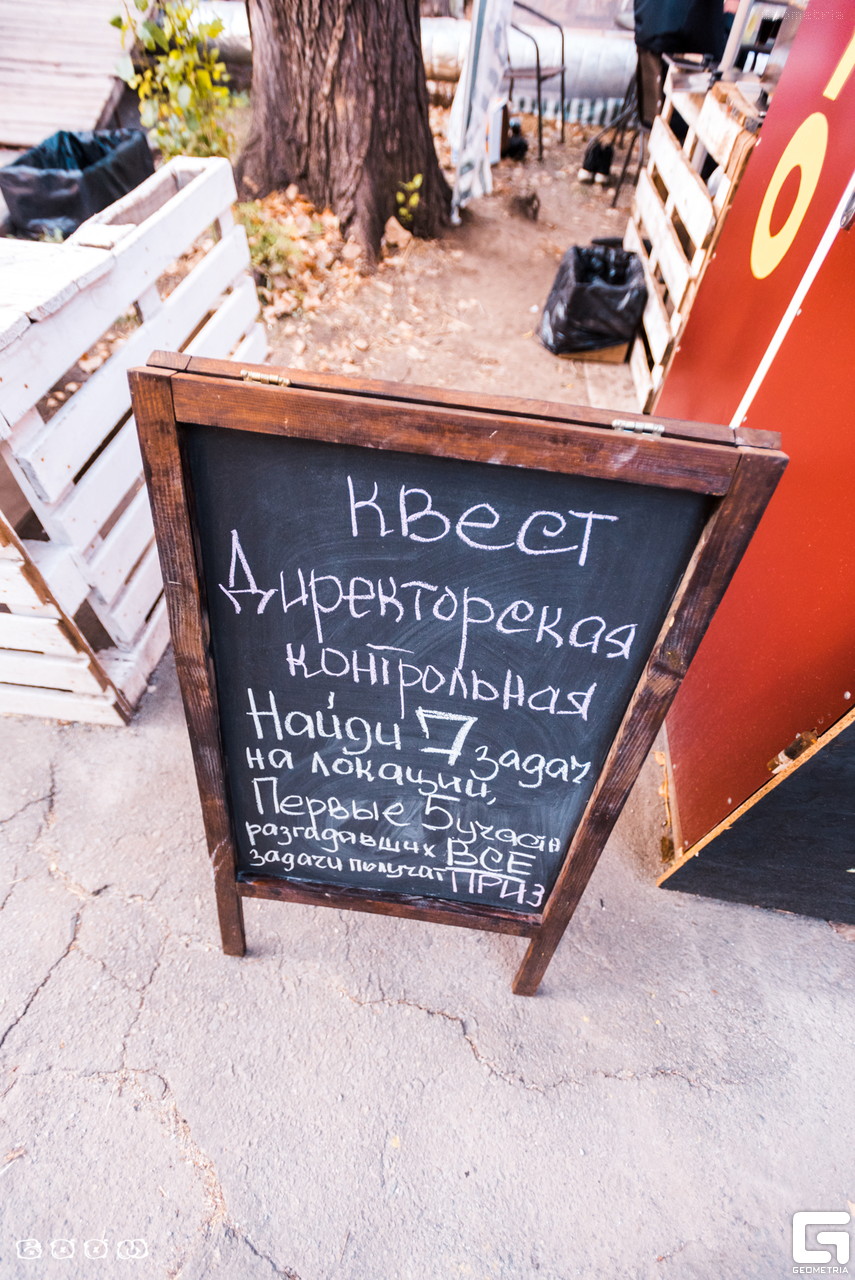 квест
Директорская
контрольная
Найди 7 задач
на локации,
Первые 5 участн
разгадавших ВСЕ
задачи получат ПРИЗ
GEOMETRIA